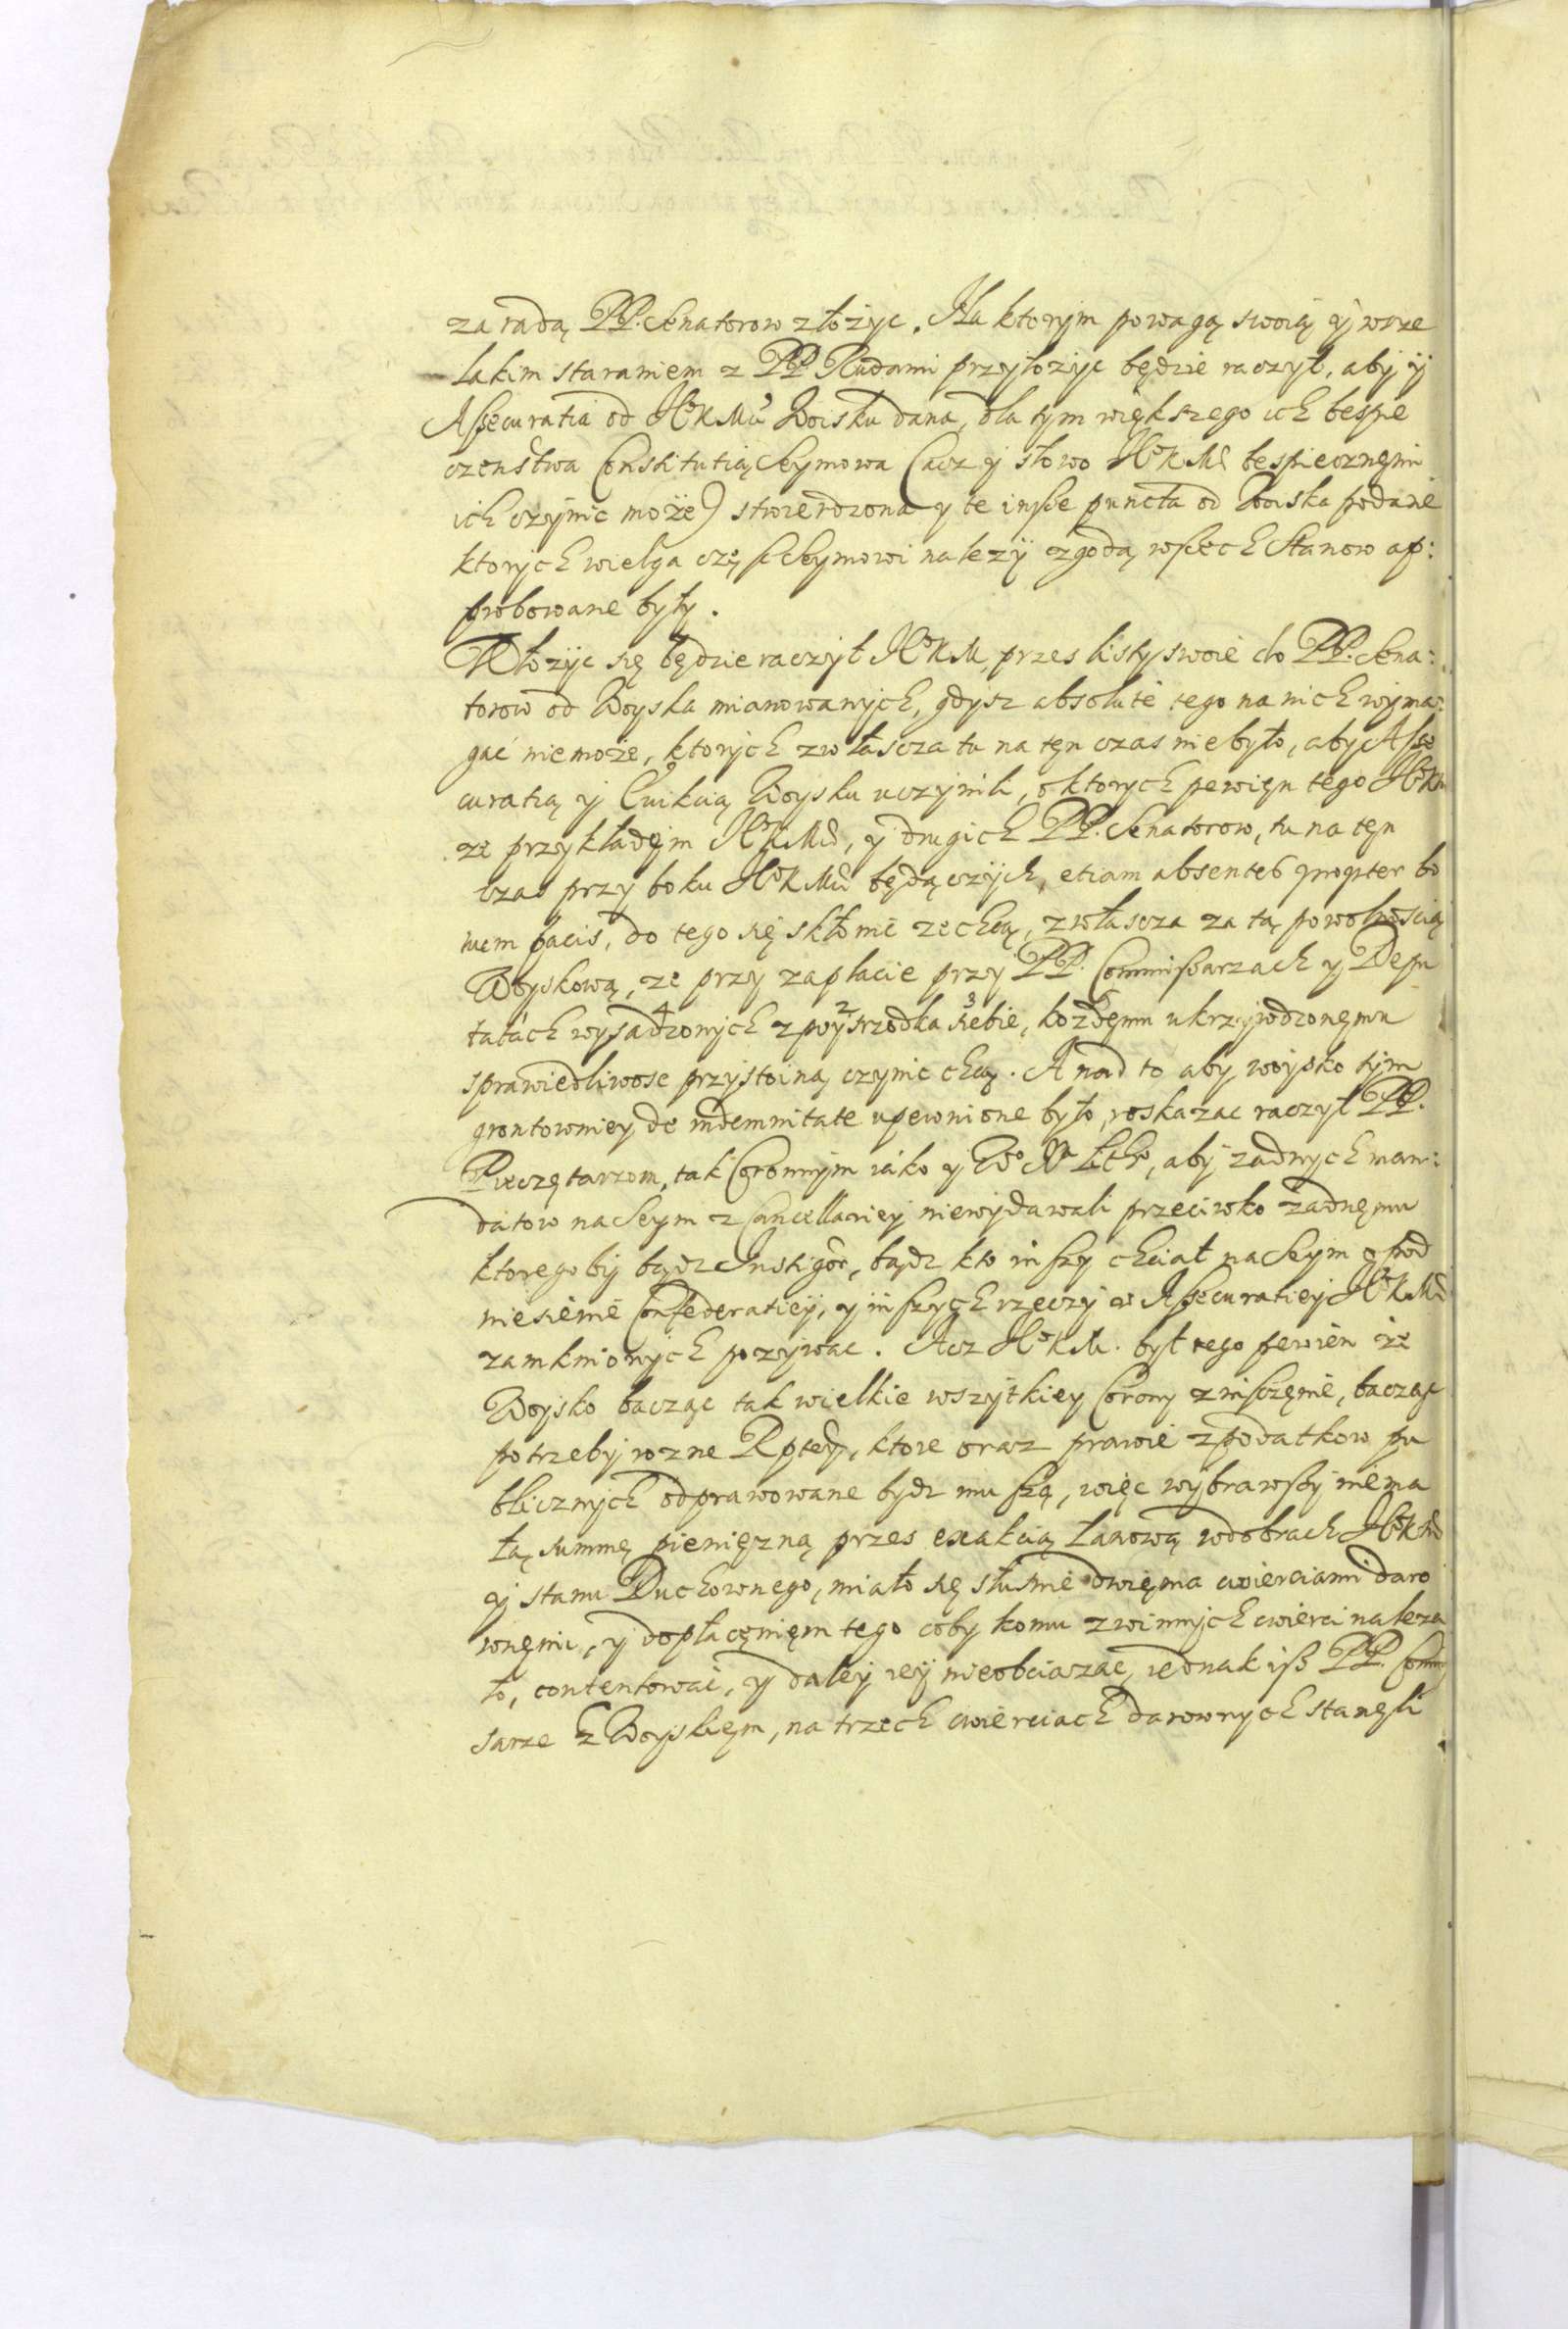 za radą PP. Senatorow złożyc. Na ktorym powagą swoią y wsze
lakim staraniem z PP Radami przyłożyc będzie raczył, aby y
Assecuratia od JoKMci Woisku dana, dla tym większego ich bespie
czenstwa Constitutią Seymowa (acz y słowo JoKMci bespiecznemi
ich czynic może) stwierdzona y te insze puncta od Woiska podane
ktorych wielga częsc Seymowi należy zgodą wszech Stanow ap:
probowane były.
Włożyc się będzie raczył JoKM, przes listy swoie do PP. Sena:
torow od Woyska mianowanych, gdysz absoluté tego na nich wyma:
gać nie może, ktorych zwłascza tu na ten czas nie było, aby Asse
curatią y Ewikcią Woysku uczynili, o ktorych pewien tego JoKM
że przykładem JoKMci, y drugich PP. Senatorow, tu na ten
czas przy boku JoKMci będączych, etiam absentes propter bo
num pacis, do tego się skłonić zechcą, zwłascza za tą powolnoscią
Woyskową, że przy zapłacie przy PP. Commissarzach y Depu
tatach wysadzonych z pośrzodka siebie, kożdemu ukrzywdzonemu
sprawiedliwosc przystoiną czynic chcą. A nad to aby woysko tym
grontowniey de indemnitate upewnione było, roskazac raczył PP.
Pieczętarzom, tak Coronnym iáko y Wo Xa Litho, aby żadnych man:
datow na Seym z Cancellariey niewydawali przeciwko żadnemu
ktoregoby bądz Instigor, bądz kto inszy chciał na Seym o pod
niesienie Confederatiey, y inszych rzeczy w Assecuratiey JoKMci
zamknionych pozywac. Acz JoKM. był tego pewien że
Woysko bacząc tak wielkie wszytkiey Corony zniszczenie, bacząc
potrzeby rozne Rptey, ktore oraz prawie z podatkow pu
blicznych odprawowane bydz muszą, więc wybrawszy niema
łą summę pieniężną przes exakcią łanową w dobrach JoKMci
y stanu Duchownego, miało się słusznie dwiema cwierciami daro
wnemi, y dopłaceniem tego coby komu z winnych cwierci należa
ło, contentować, y daley iey nieobciążać, iednak isz PP. Commis
sarze z Woyskiem, na trzech cwierciach darownych stanęli